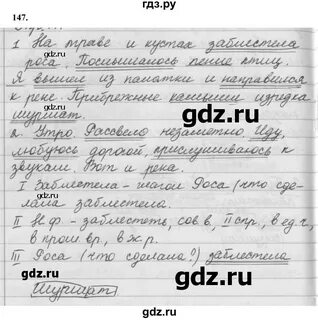 гдз.ру
147.
1 На траве и кустах заблестела
роса. Послышалось пение птиц.
Я вышел из палатки и направился
к реке. Прибрежные камыши изредка
шуршат.
2. Утро. Рассвело незаметно. Иду,
любуюсь дорогой, прислушиваюсь к
звукам. Вот и река.
I Заблестела - глагол Роса (что сде-
лала заблестела.
II Н.ф. - заблестеть, сов в, II спр, в ед ч,
в прош. вр., в ж р.
III Роса (что сделала?) заблестела
Шуршат
gdz.ru
gdz.ru
gdz.ru
gdz.ru
gdz.ru
gdz.ru